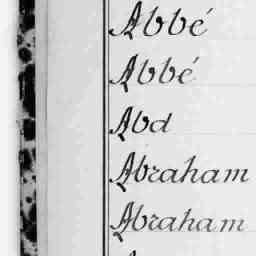 Abbé
Abbé
Abd
Abraham
Abraham